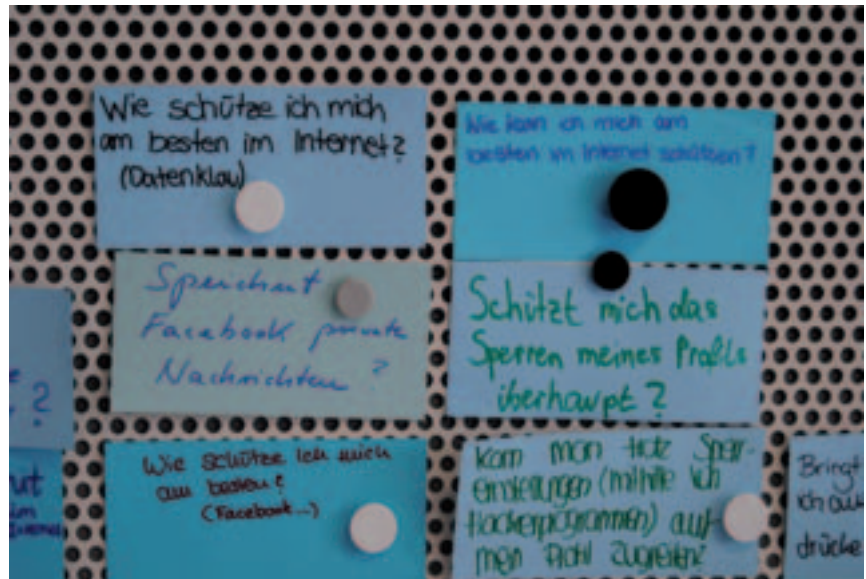 Wie schütze ich mich
am besten im Internet?
(Datenklau)
Wie kann ich mich am
besten im Internet schützen?
Speichert
Facebook private
Nachrichten ?
Schützt mich das
Sperren meines Profils
überhaupt ?
?
Wie schütze ich mich
am besten?
(Facebook...)
Kann man trotz Sperr-
einstellungen (mithilfe von
Hackerprogrammen) auf
mein Profil zugreifen?
Bringt
ich
drücke